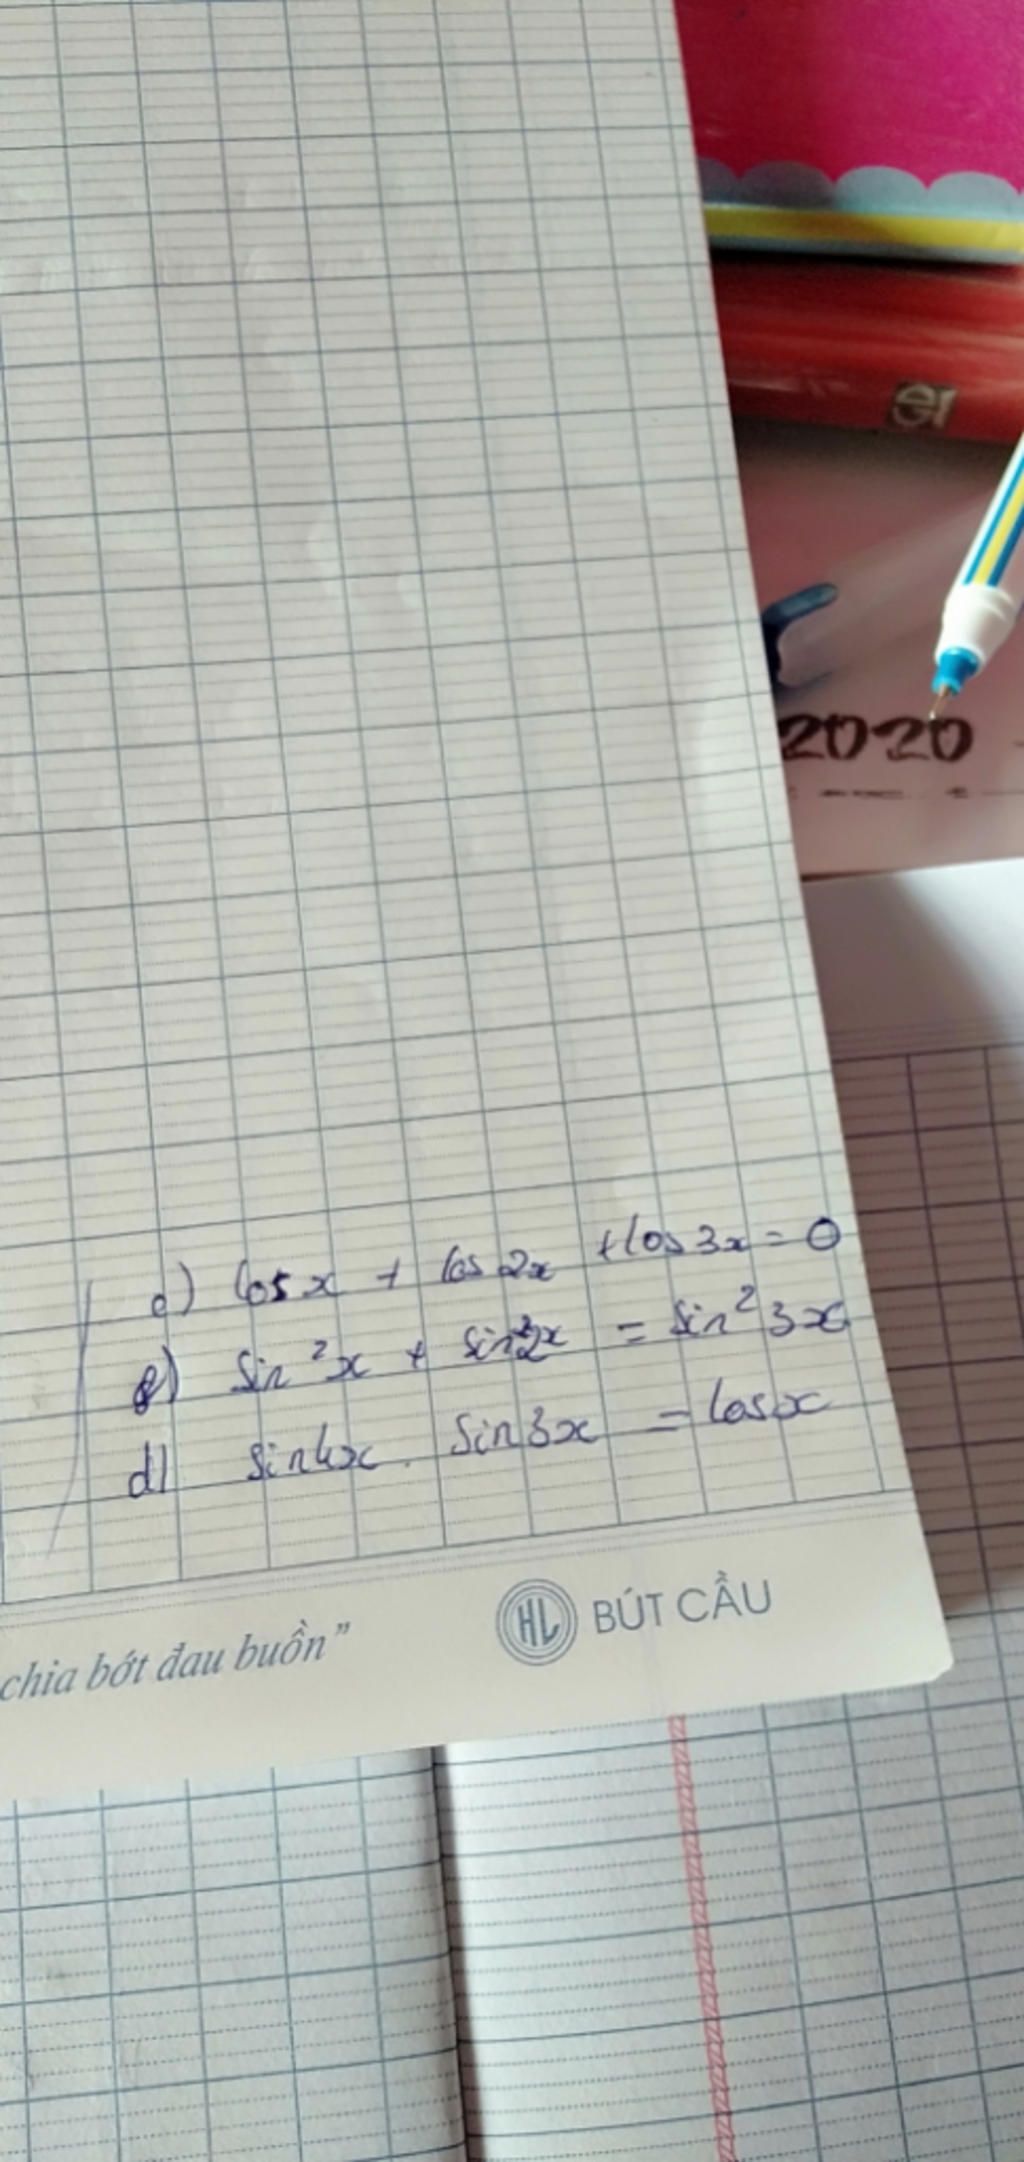 2020
c) cos x + cos 2x + cos 3x = 0
sin²x + sin²2x = sin²3x
d) sin4x . sin3x = cosx
chia bớt đau buồn"
HL BÚT CẦU